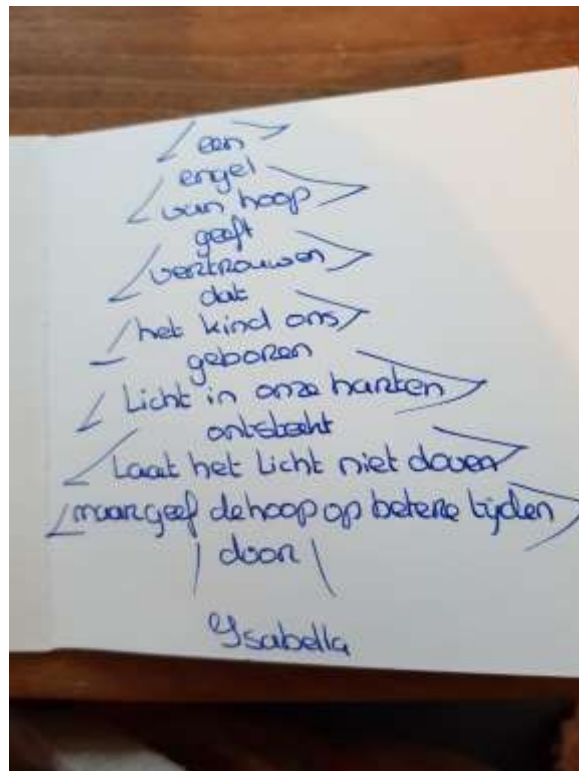 een
engel
van hoop
geeft
vertrouwen
dat
het kind ons
geboren
Licht in onze harten
ontsteekt
Laat het Licht niet doven
maar geef de hoop op betere tijden
door
Ysabella